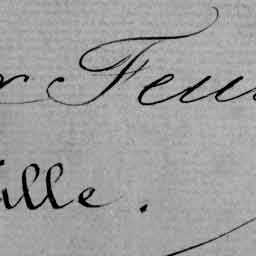 r Feu
ille.